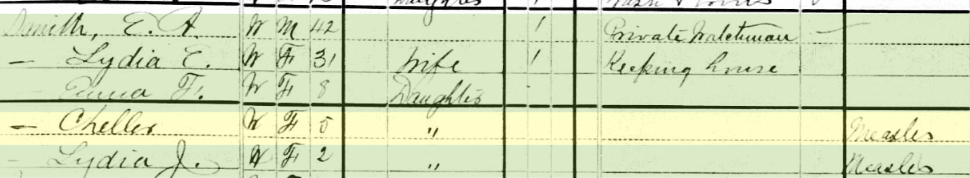 E. A. W M 42 1 Private Watchman
— Lydia E. W F 31 Wife 1 Keeping house
F. W F 8 Daughter
— Cheller W F 5 " Measles
— Lydia J. W F 2 " Measles